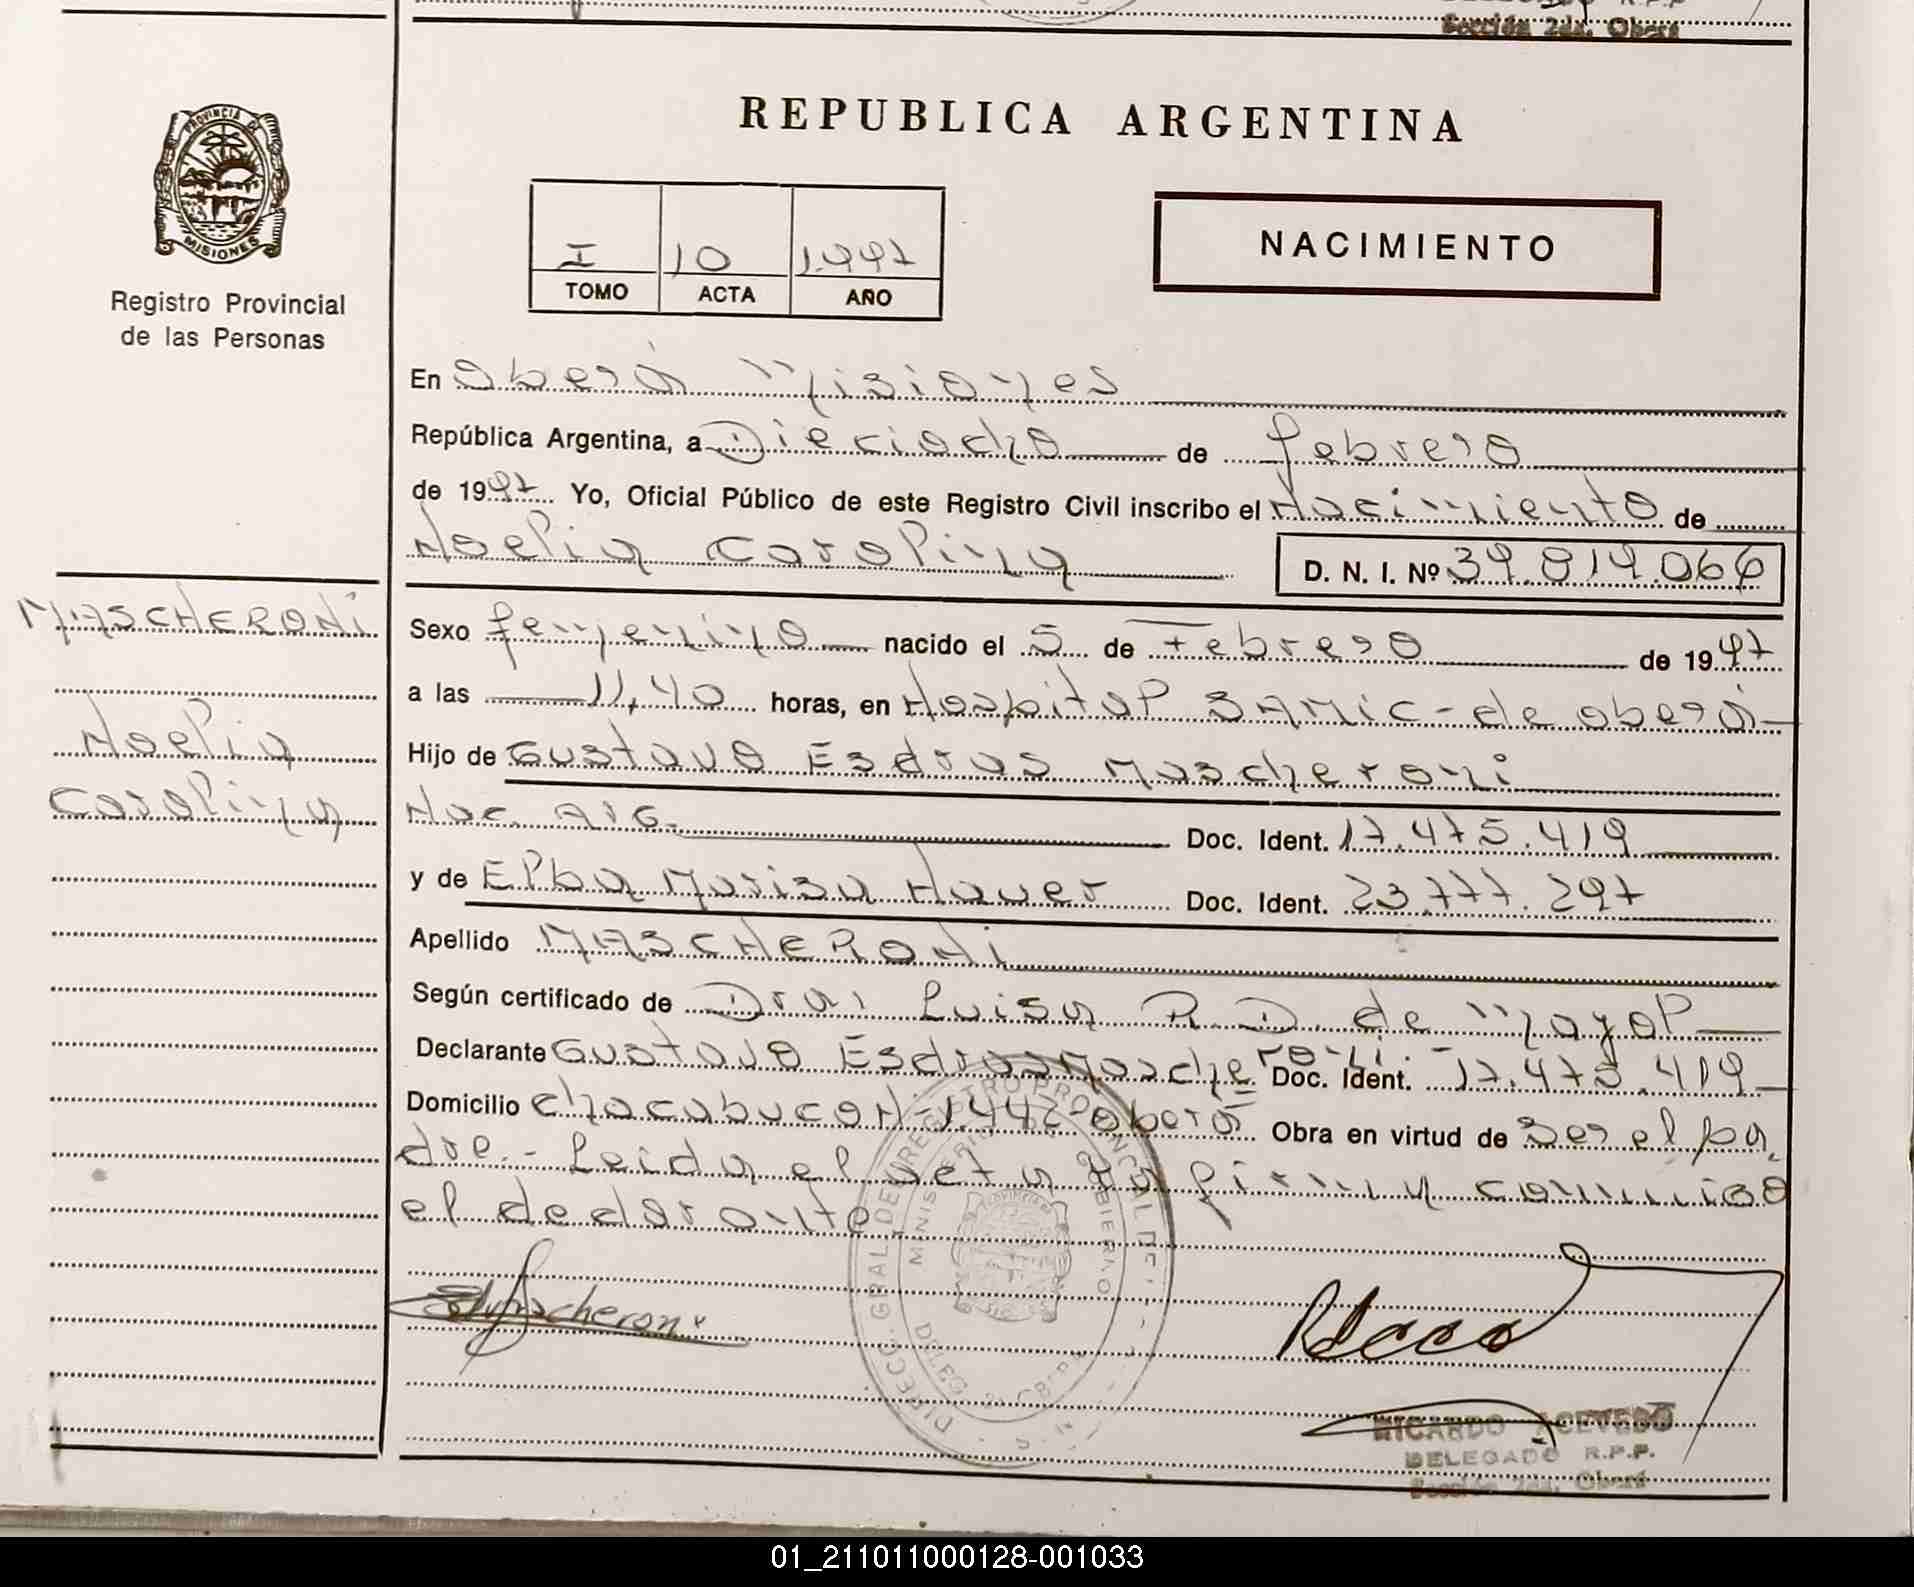 Sección 2da. Oberá
PROVINCIA DE
MISIONES
Registro Provincial
de las Personas
REPUBLICA ARGENTINA
I 10 1.997
TOMO ACTA AÑO
NACIMIENTO
En Oberá Misiones
República Argentina, a Dieciocho de febrero
de 1997 Yo, Oficial Público de este Registro Civil inscribo el Nacimiento de
Noelia Carolina D. N. I. Nº 39.819.066
MASCHERONI
Noelia
Carolina
Sexo femenino nacido el 5 de Febrero de 1997
a las 11,40 horas, en Hospital SAMIC - de Oberá
Hijo de Gustavo Esdras Mascheroni
Nac. Arg. Doc. Ident. 17.475.419
y de Elba Marisa Hauer Doc. Ident. 23.777.297
Apellido MASCHERONI
Según certificado de Dra. Luisa R. D. de Mayol
Declarante Gustavo Esdras Mascheroni.- Doc. Ident. 17.475.419
Domicilio Chacabuco N- 1.442- Oberá Obra en virtud de ser el pa
dre.- Leida el acta la firma conmigo
el declarante
Mascheroni
RICARDO ACEVEDO
DELEGADO R.P.P.
Sección 2da. Oberá
01_211011000128-001033